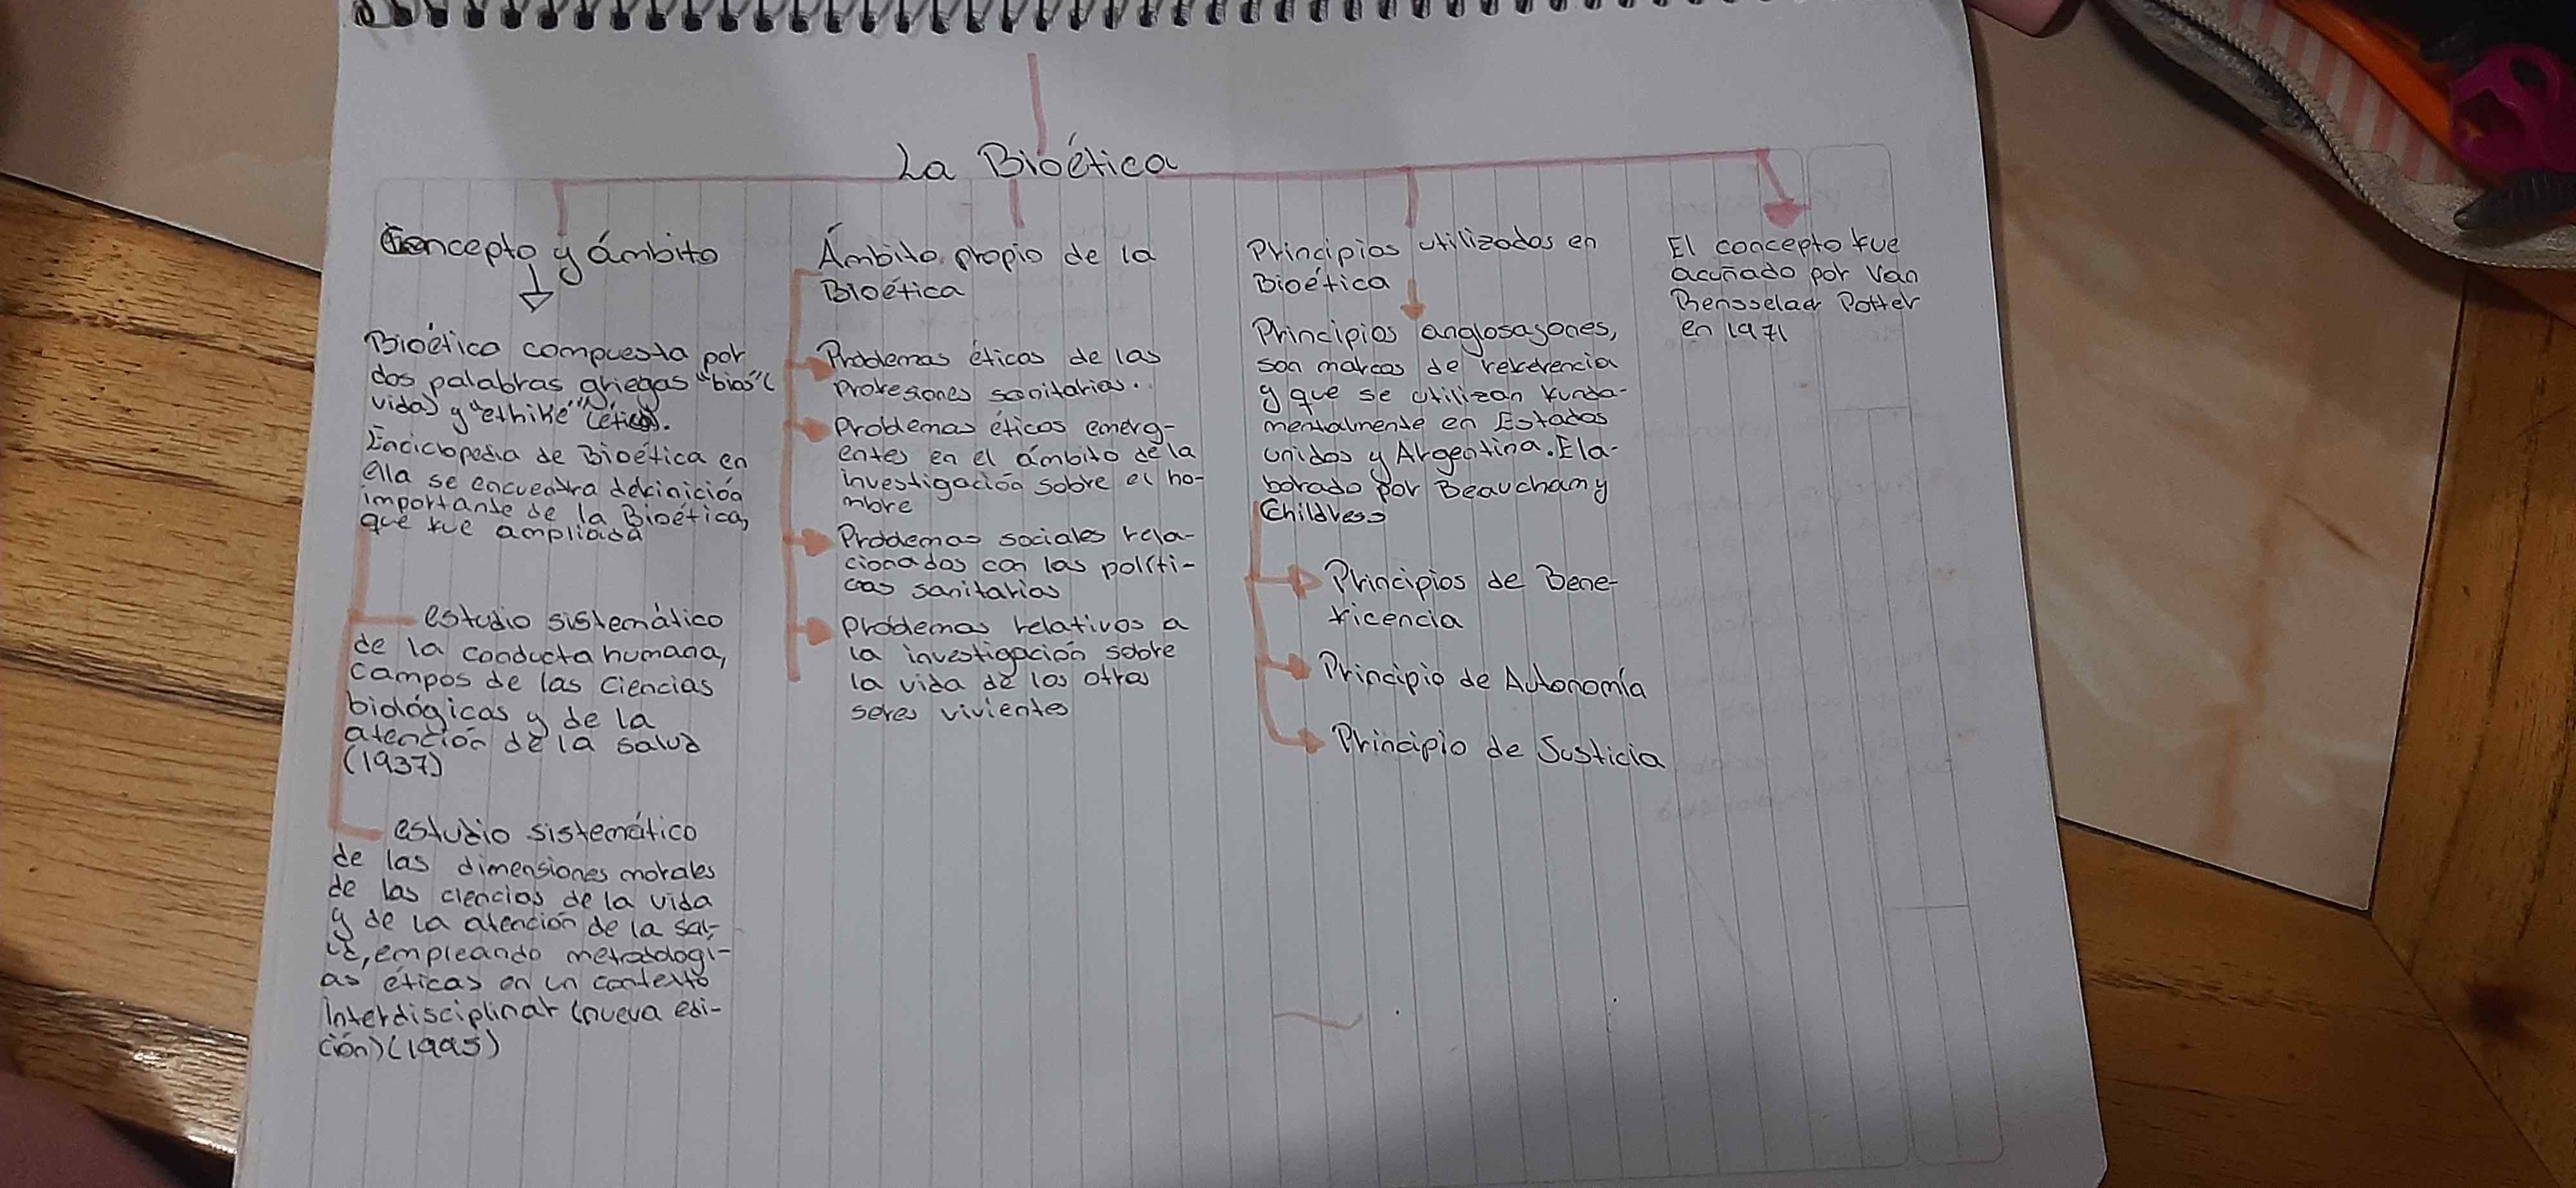 La Bioética
Concepto y ámbito
Bioética compuesta por
dos palabras griegas "bios" (
vida) y "ethiké" (ética).
Enciclopedia de Bioética en
ella se encuentra definición
importante de la Bioética,
que fue ampliada
estudio sistemático
de la conducta humana,
campos de las ciencias
biológicas y de la
atención de la salud
(1937)
estudio sistemático
de las dimensiones morales
de las ciencias de la vida
y de la atención de la sal-
ud, empleando metodologi-
as éticas en un contexto
interdisciplinar (nueva edi-
ción) (1995)
Ámbito propio de la
Bioética
Problemas éticos de las
profesiones sanitarias.
Problemas éticos emerg-
entes en el ámbito de la
investigación sobre el ho-
mbre
Problemas sociales rela-
cionados con las políti-
cas sanitarias
Problemas relativos a
la investigación sobre
la vida de los otros
seres vivientes
Principios utilizados en
Bioética
Principios anglosajones,
son marcos de referencia
y que se utilizan funda-
mentalmente en Estados
unidos y Argentina. Ela-
borado por Beaucham y
Childress
Principios de Bene-
ficencia
Principio de Autonomía
Principio de Justicia
El concepto fue
acuñado por Van
Rensselaer Potter
en 1971